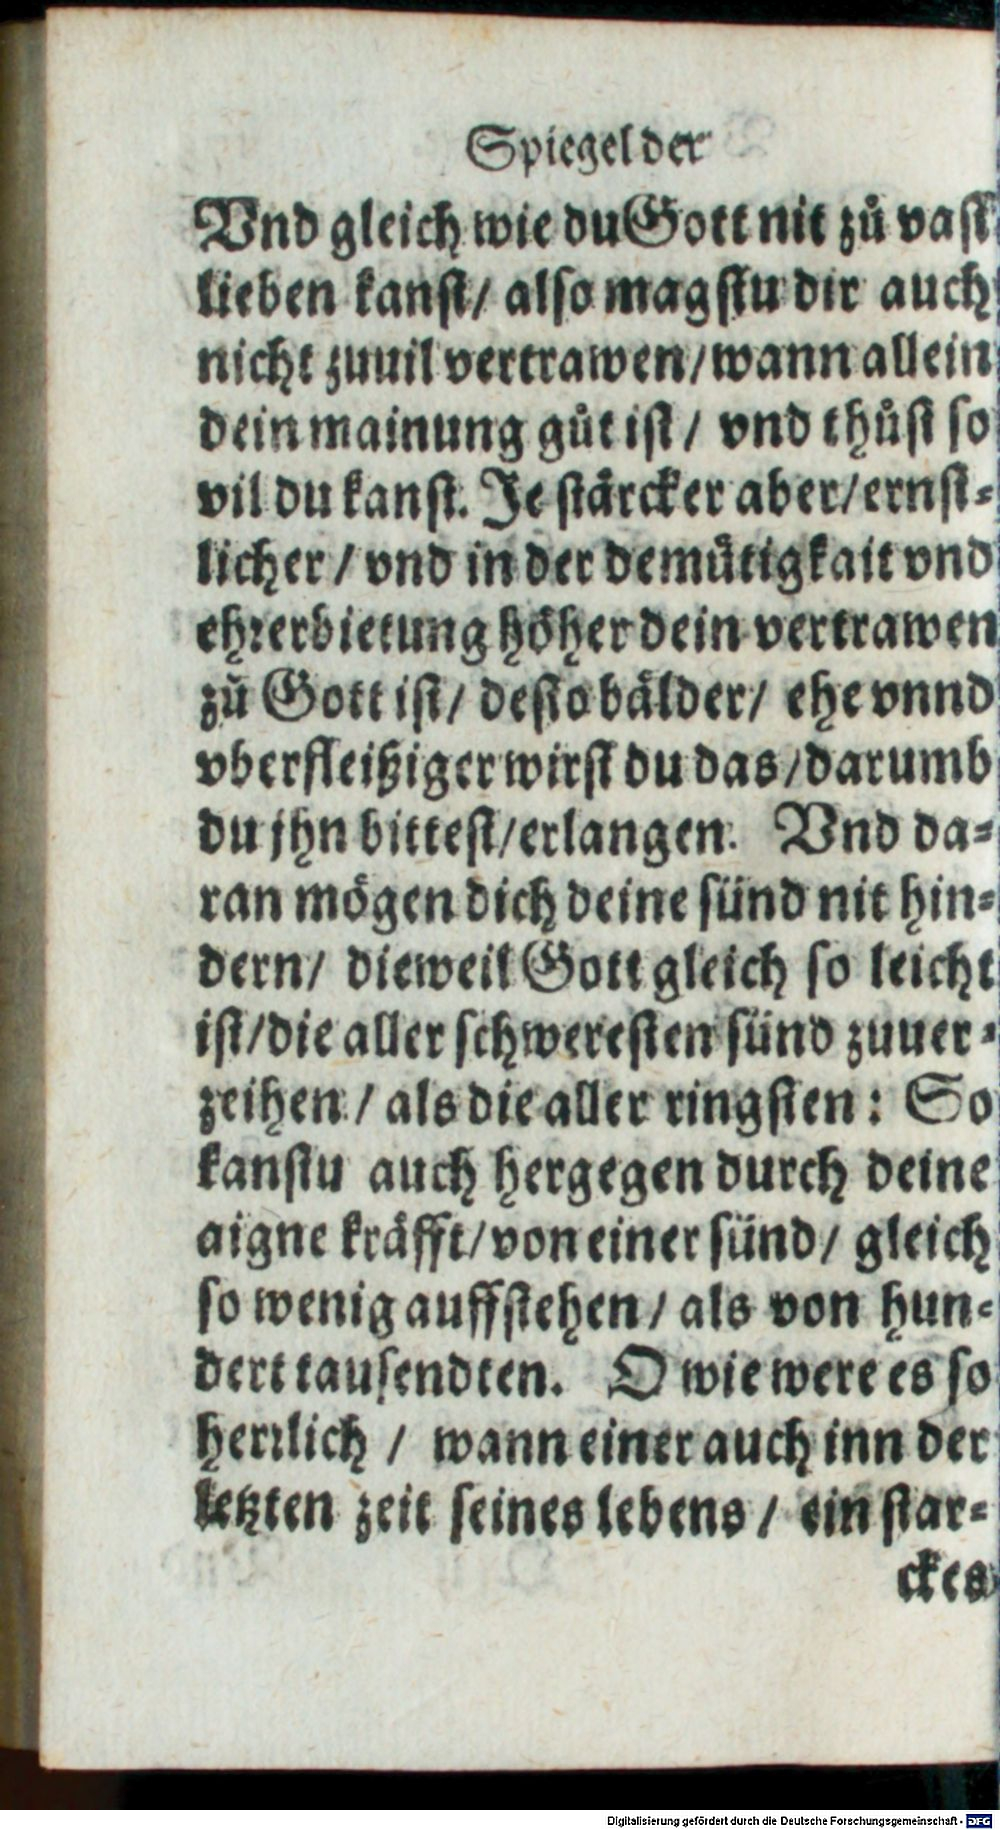 Spiegel der
Vnd gleich wie du Gott nit zů vast
lieben kanst/ also magstu dir auch
nicht zuuil vertrawen/ wann allein
dein mainung gůt ist/ vnd thůst so
vil du kanst. Je stärcker aber/ ernst-
licher/ vnd in der demütigkait vnd
ehrerbietung höher dein vertrawen
zů Gott ist/ desto bälder/ ehe vnnd
vberfleißiger wirst du das/ darumb
du jhn bittest/ erlangen. Vnd da-
ran mögen dich deine sünd nit hin-
dern/ dieweil Gott gleich so leicht
ist/ die aller schweresten sünd zuuer-
zeihen/ als die aller ringsten: So
kanstu auch hergegen durch deine
aigne kräfft/ von einer sünd/ gleich
so wenig auffstehen/ als von hun-
dert tausendten. O wie were es so
herrlich/ wann einer auch inn der
letzten zeit seines lebens/ ein star-
ckes
Digitalisierung gefördert durch die Deutsche Forschungsgemeinschaft - DFG